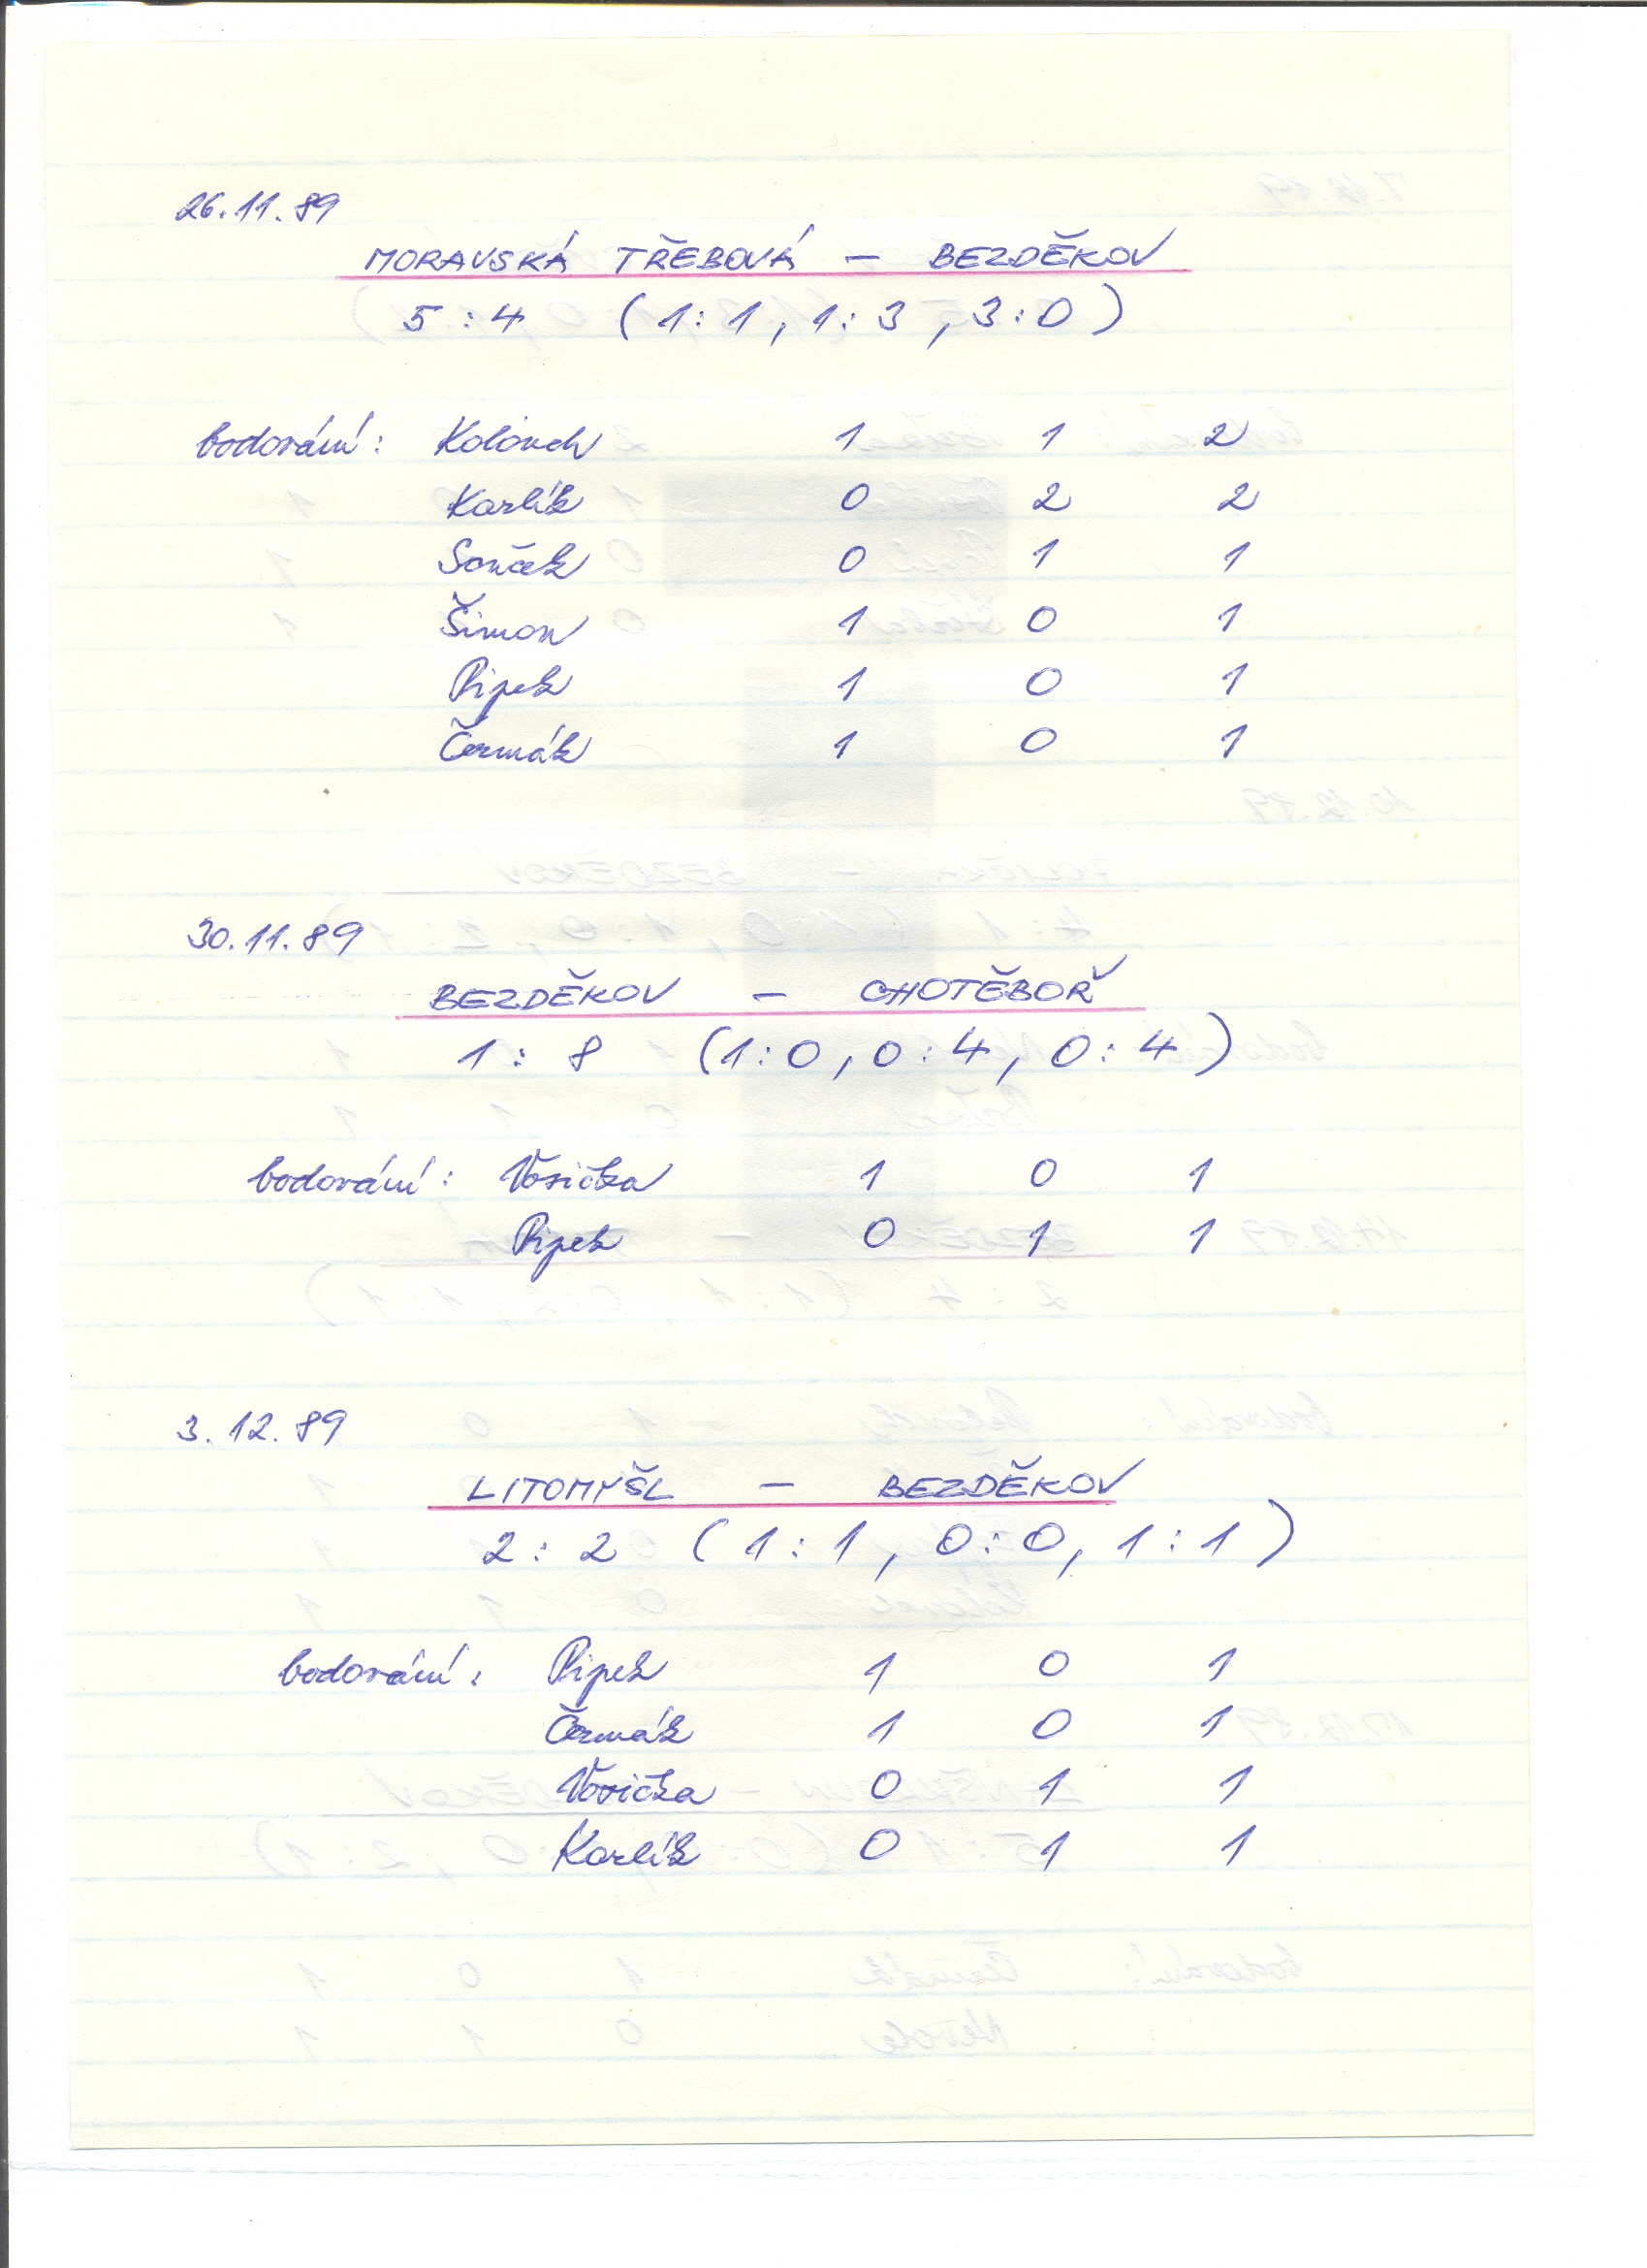 26.11.89
MORAVSKÁ TŘEBOVÁ — BEZDĚKOV
5 : 4 (1:1, 1:3, 3:0)
bodování: 1 1 2
Karlík 0 2 2
Souček 0 1 1
Šimon 1 0 1
Pipek 1 0 1
Čermák 1 0 1
30.11.89
BEZDĚKOV — CHOTĚBOŘ
1 : 8 (1:0, 0:4, 0:4)
bodování: Vosička 1 0 1
Pipek 0 1 1
3.12.89
LITOMYŠL — BEZDĚKOV
2 : 2 (1:1, 0:0, 1:1)
bodování: Pipek 1 0 1
Čermák 1 0 1
Vosička 0 1 1
Karlík 0 1 1